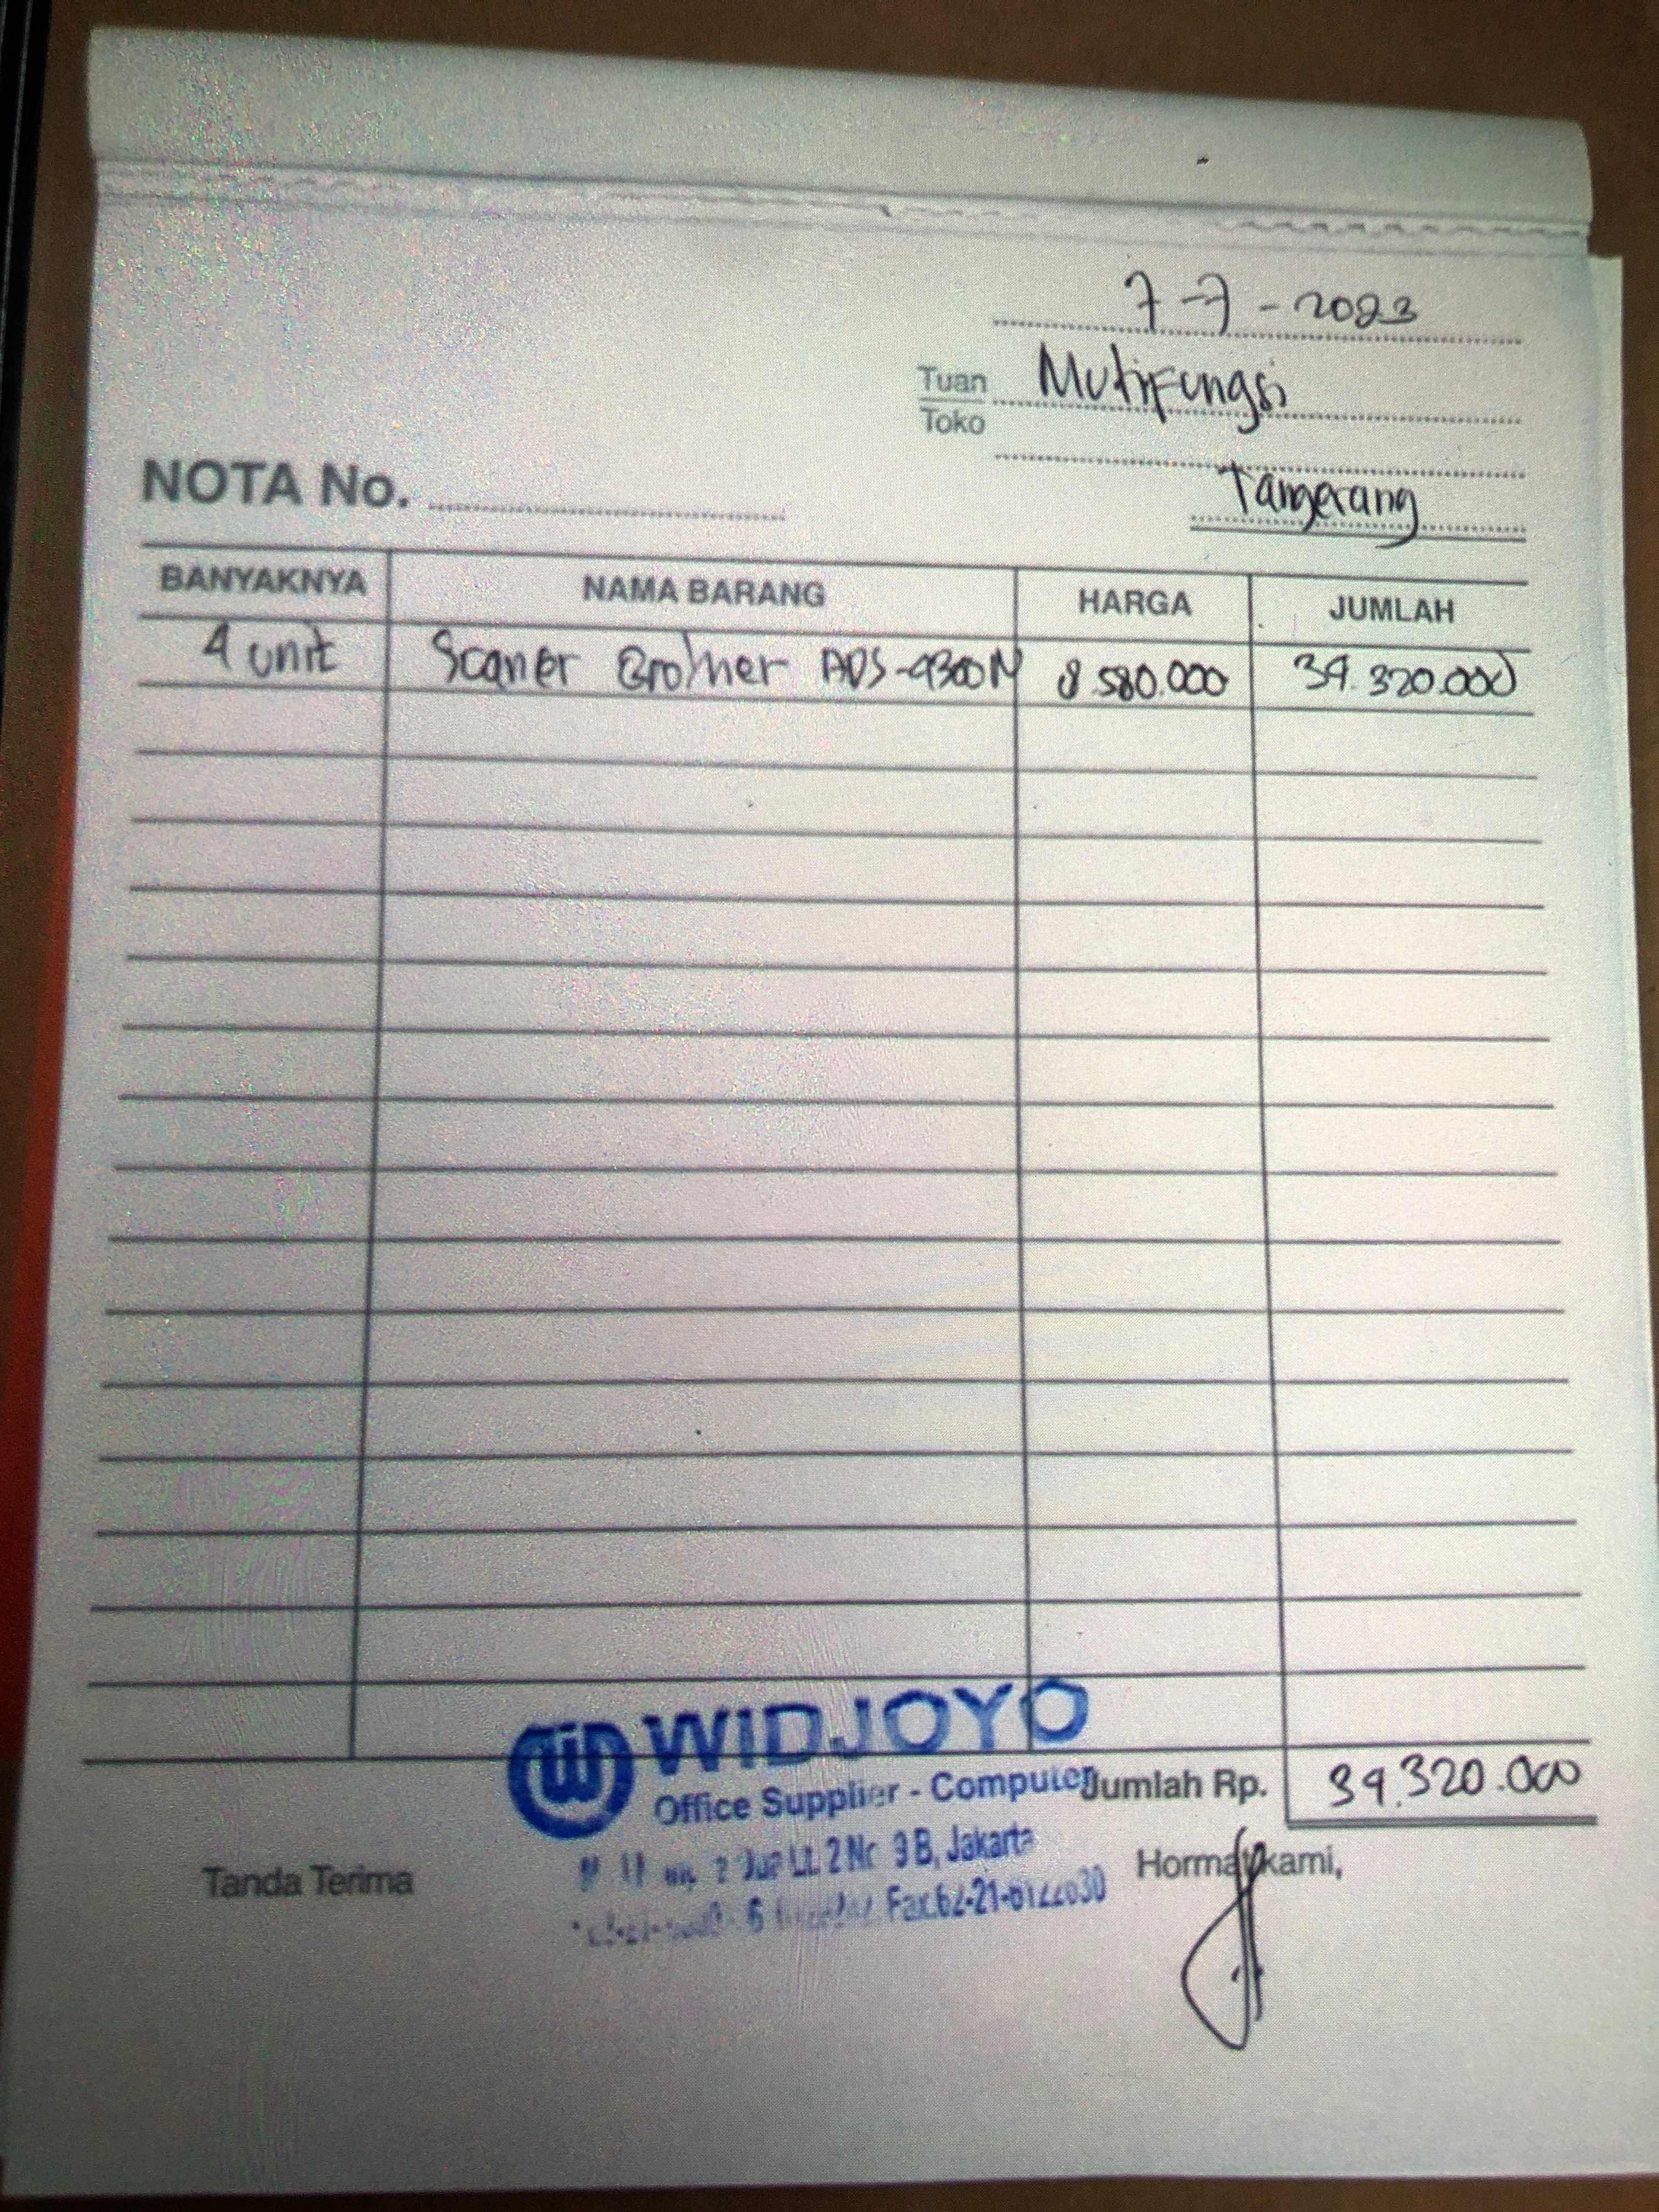 7-7-2023
Tuan Mutifungsi
Toko
Tangerang
NOTA No.
BANYAKNYA NAMA BARANG HARGA JUMLAH
4 unit Scaner Brother ADS-4300N 8.580.000 34.320.000
WIDJOYO
Office Supplier - Computer
Jumlah Rp. 34.320.000
Lt. 2 Nr 9 B, Jakarta
Fax.62-21-6122630
Tanda Terima Hormat kami,